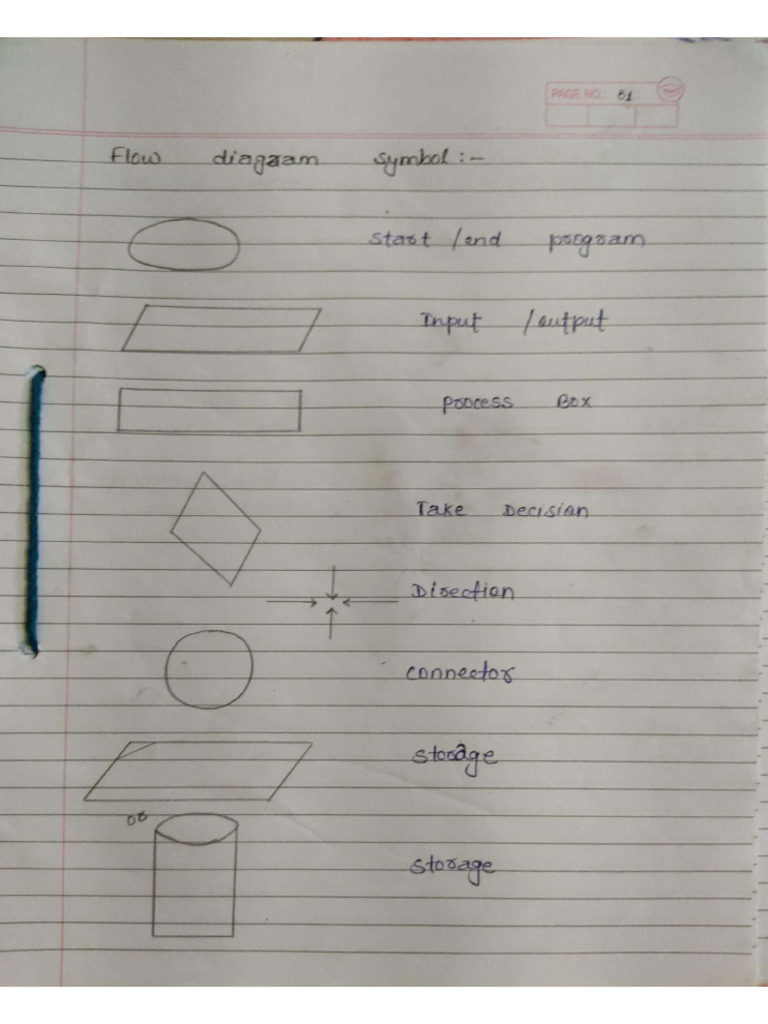 PAGE NO.: 01
Flow diagram symbol :-
Start /end program
Input /output
Process Box
Take Decision
Direction
connector
storage
or
storage